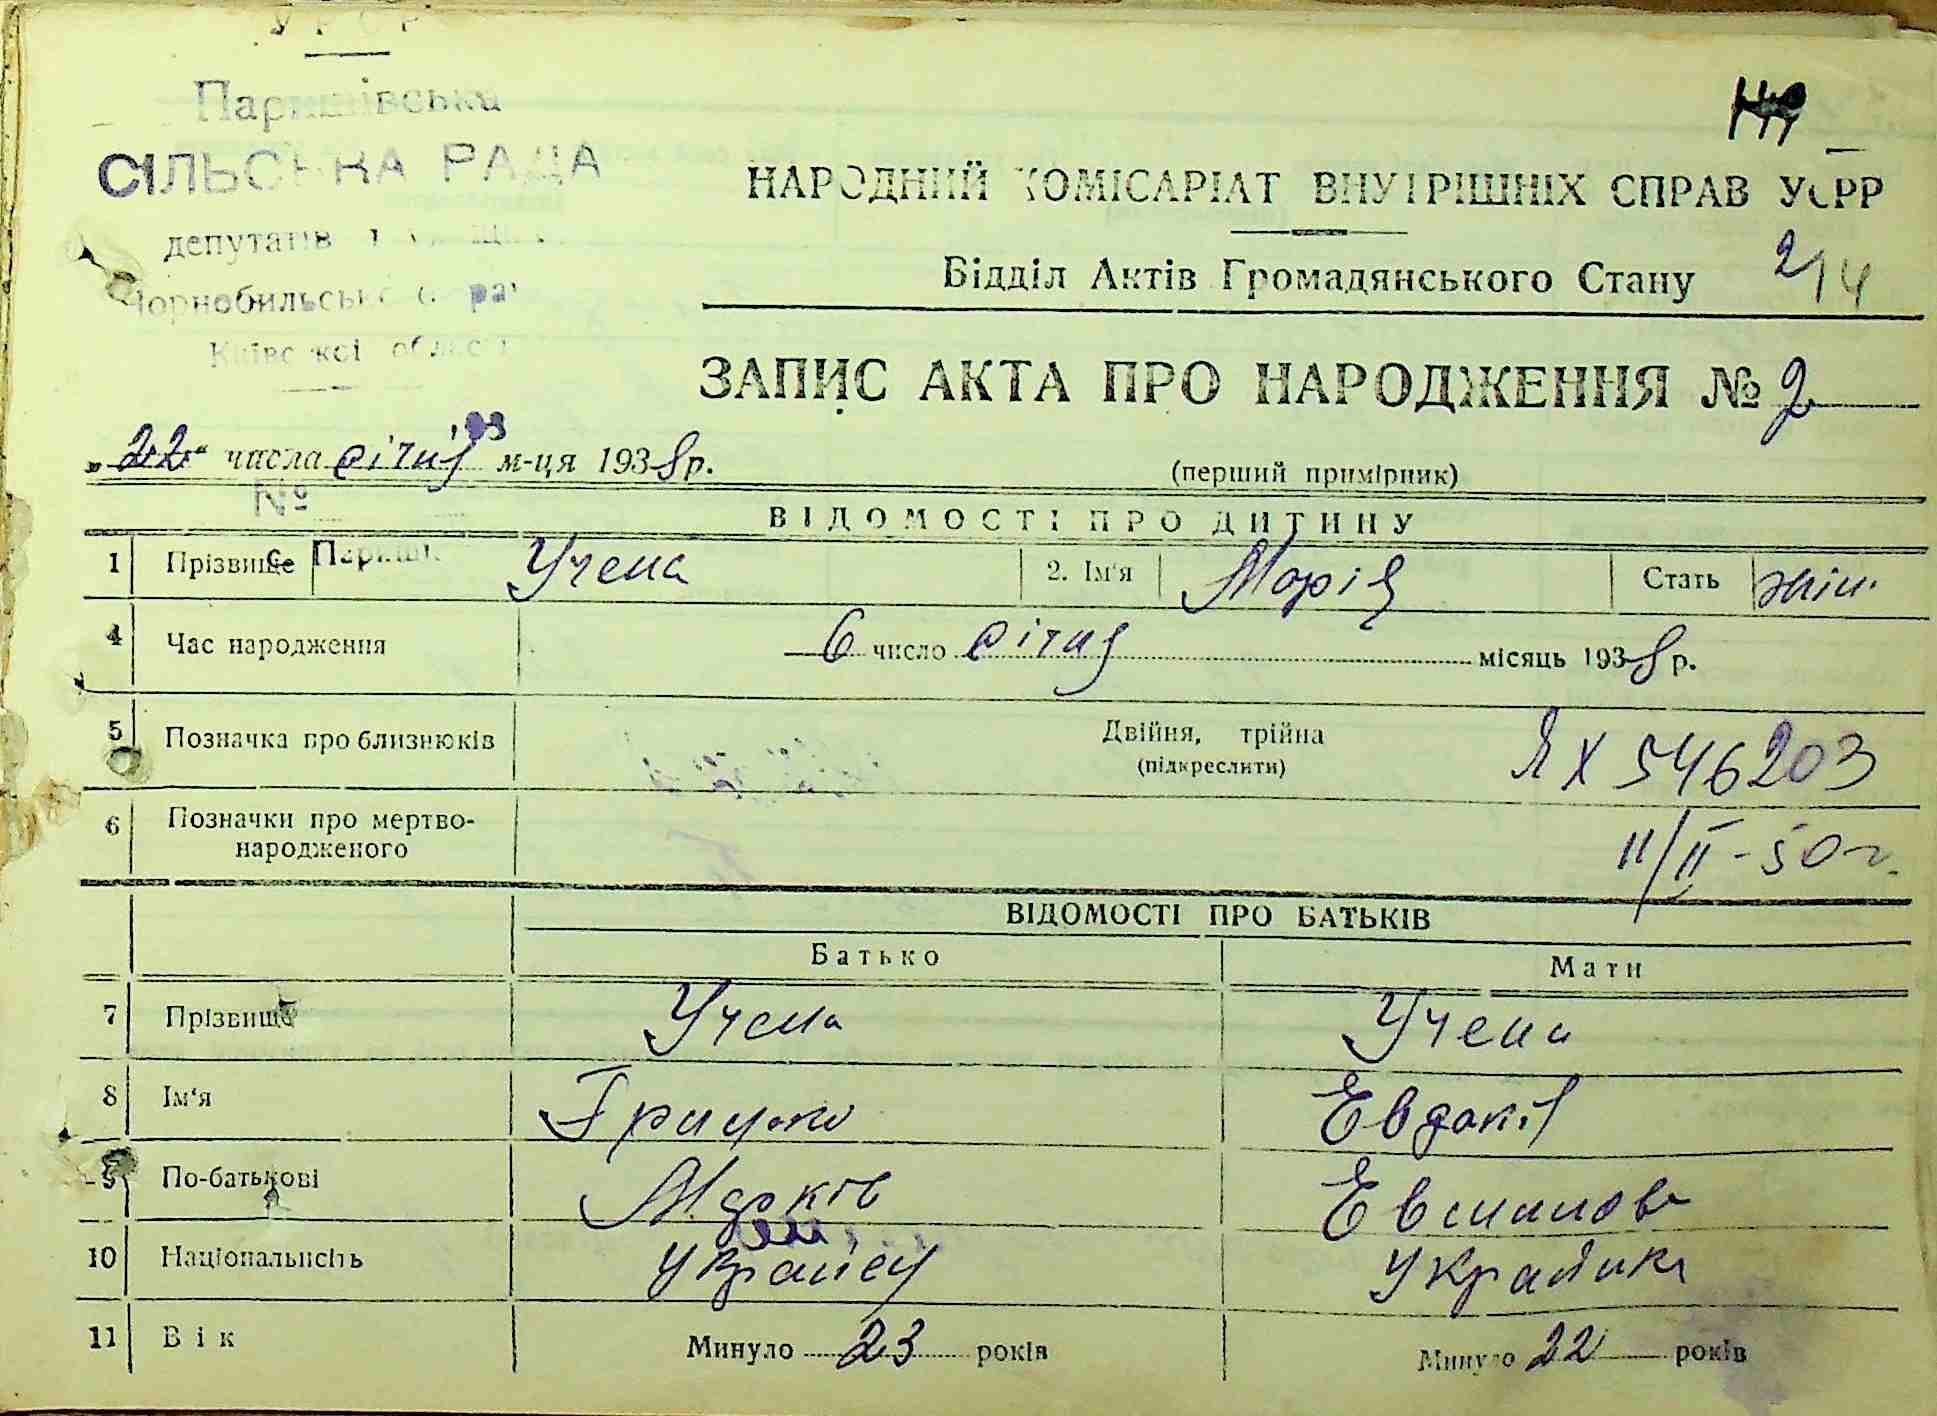 УРСР
Паришівська
СІЛЬСЬКА РАДА
депутатів
Чорнобильськ
Київської област
НАРОДНИЙ КОМІСАРІАТ ВНУТРІШНІХ СПРАВ УСРР
Відділ Актів Громадянського Стану 214
ЗАПИС АКТА ПРО НАРОДЖЕННЯ № 2
„22“ числа січня м-ця 1938 р.
(перший примірник)
№
ВІДОМОСТІ ПРО ДИТИНУ
1 Прізвище Учена 2. Ім'я Марія Стать жін.
с. Париш
4 Час народження 6 число січня місяць 1938 р.
5 Позначка про близнюків Двійня, трійна ЯХ 546203
(підкреслити)
6 Позначки про мертво-
народженого 11/II-50г.
ВІДОМОСТІ ПРО БАТЬКІВ
Батько Мати
7 Прізвище Учена Учена
8 Ім'я Грицько Евдокія
9 По-батькові Марків
10 Національність Українец Українка
11 Вік Минуло 23 років Минуло 22 років